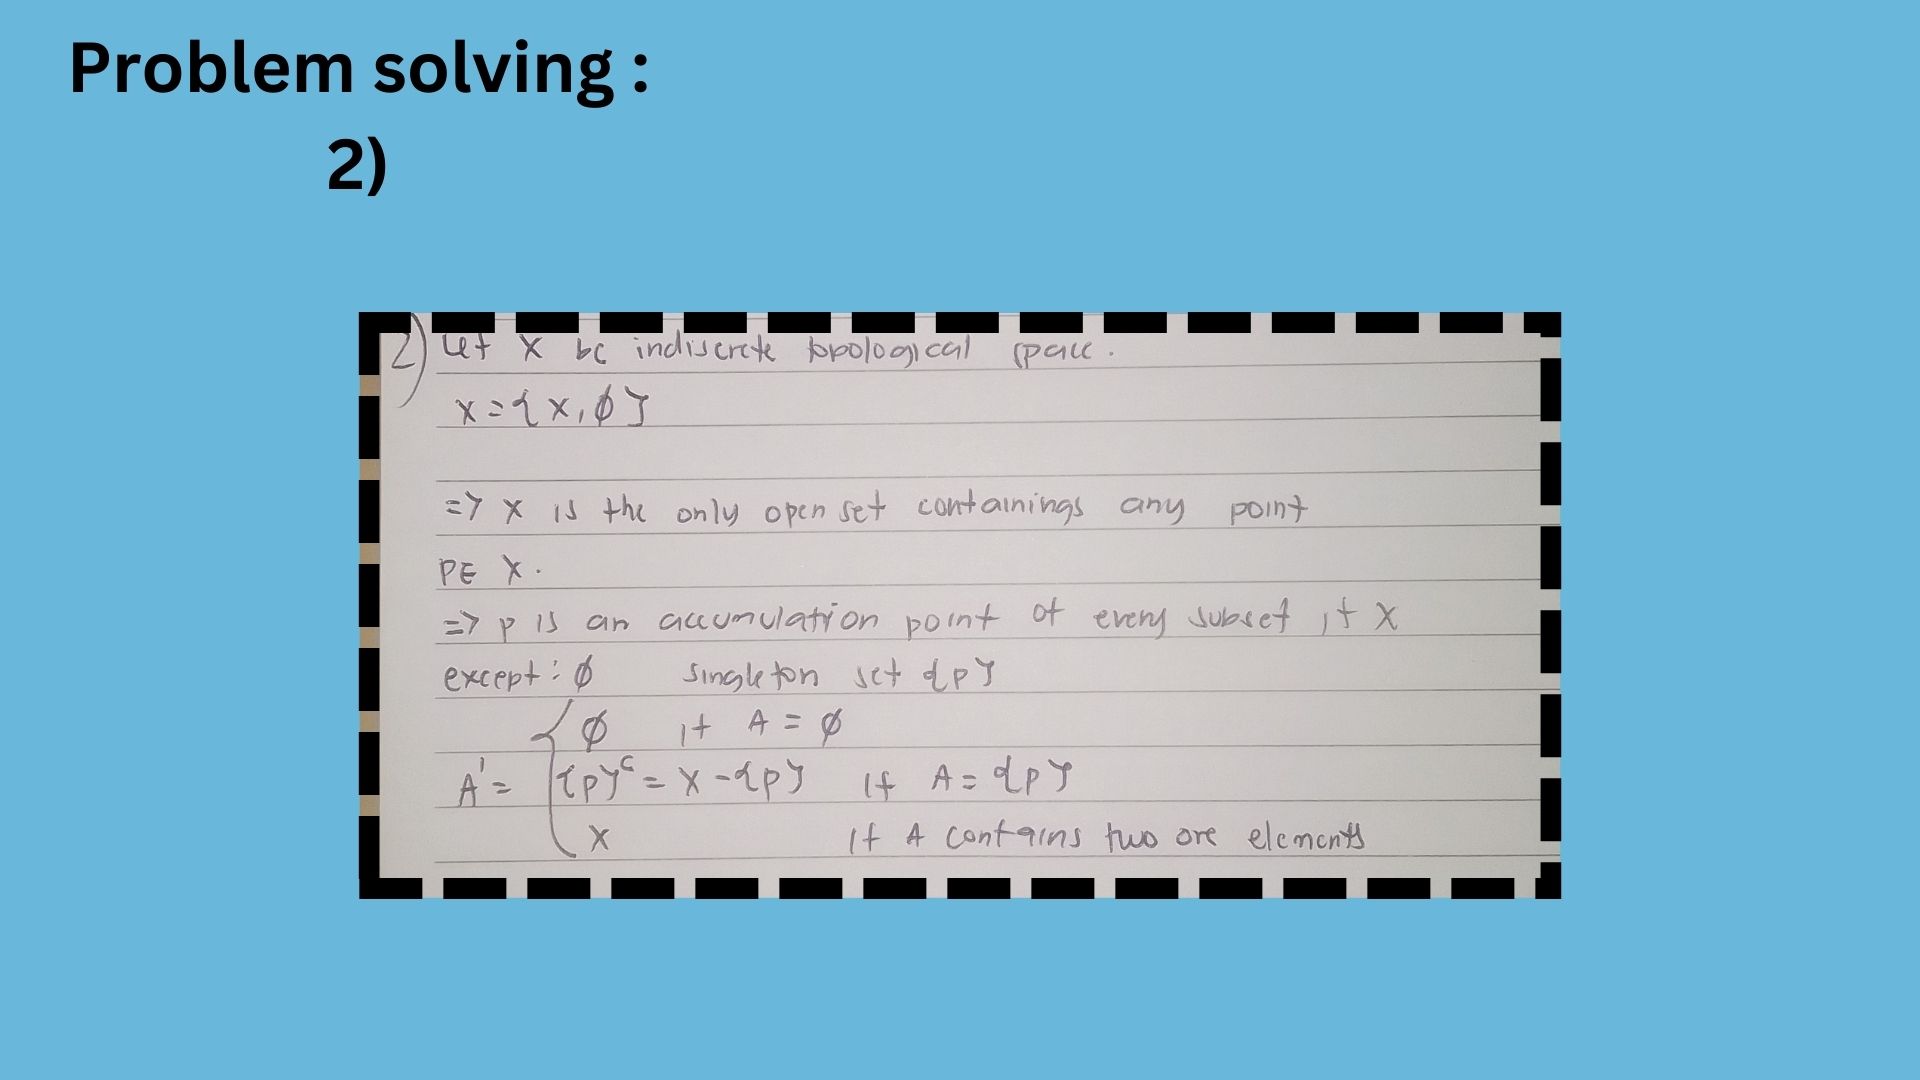 Problem solving :
2)
2) Let X be indiscrete topological space.
X = {X, ∅}
=> X is the only open set containings any point
P∈ X.
=> p is an accumulation point of every subset if X
except: ∅ singleton set {p}
∅ if A = ∅
A' = {p}ᶜ = X - {p} If A = {p}
X If A contains two ore elements